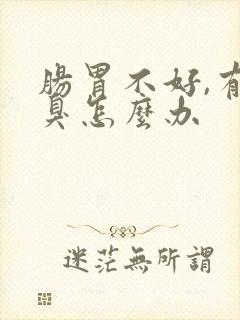 腸胃不好,有
臭怎麼办
迷茫無所謂